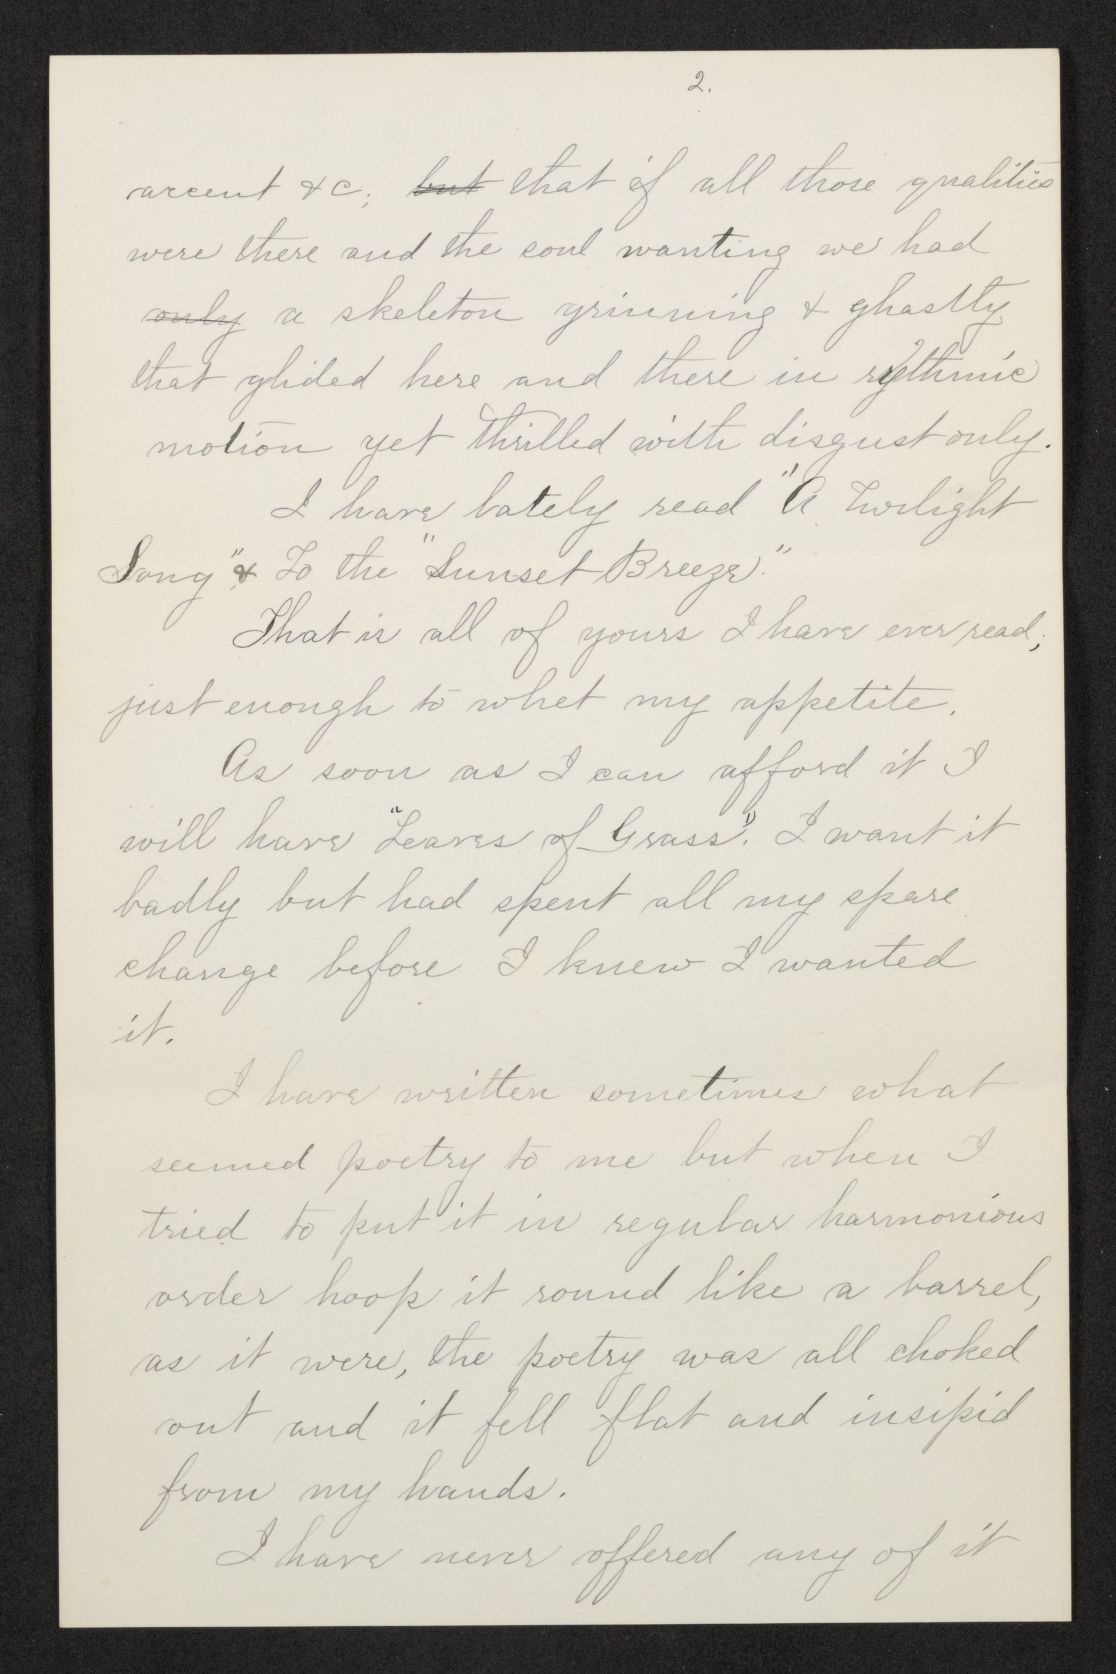 2.
accent &c; but that if all those qualities
were there and the soul wanting we had
only a skeleton grinning & ghastly
that glided here and there in rythmic
motion yet thrilled with disgust only.
I have lately read "A Twilight
Song" & To the "Sunset Breeze."
That is all of yours I have ever read;
just enough to whet my appetite.
As soon as I can afford it I
will have "Leaves of Grass". I want it
badly but had spent all my spare
change before I knew I wanted
it.
I have written sometimes what
seemed poetry to me but when I
tried to put it in regular harmonious
order hoop it round like a barrel,
as it were, the poetry was all choked
out and it fell flat and insipid
from my hands.
I have never offered any of it